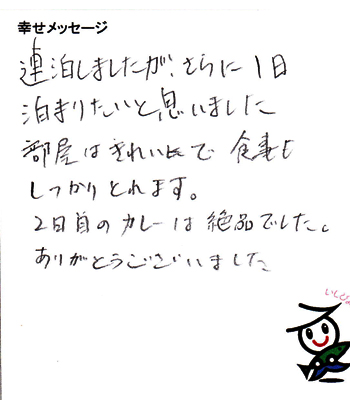 幸せメッセージ
連泊しましたが、さらに1日
泊まりたいと思いました
部屋はきれいで 食事も
しっかりとれます。
2日目のカレーは絶品でした。
ありがとうございました